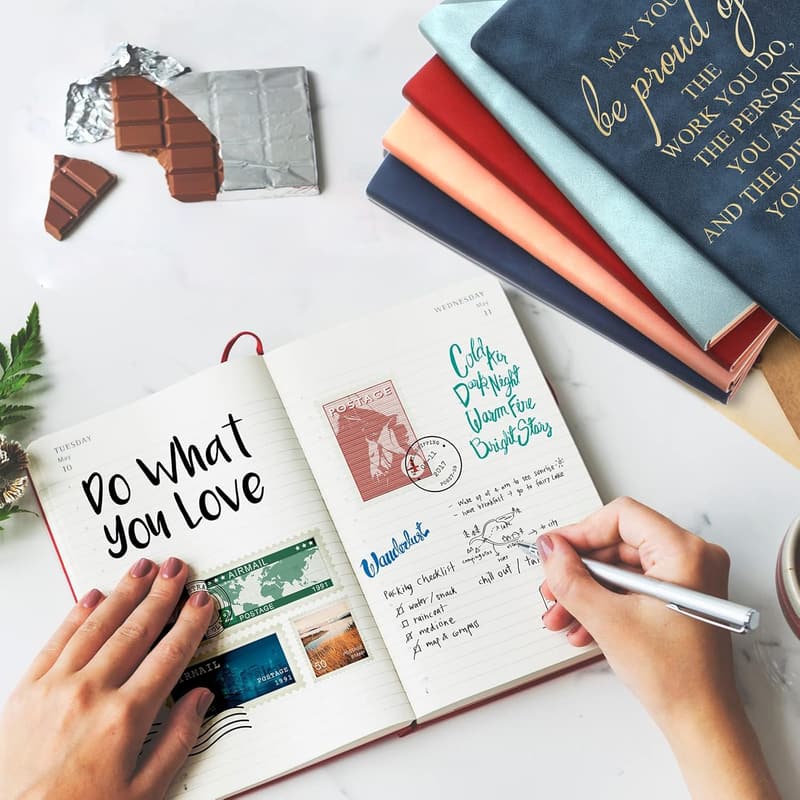 MAY YOU
be proud of
THE
WORK YOU DO,
THE PERSON
YOU ARE
AND THE DI
YO
TUESDAY
May
10
Do What
you Love
AIRMAIL
POSTAGE
1991
RMAIL
POSTAGE
1991
50
WEDNESDAY
May
11
POSTAGE
2017
Cold Air
Dark Night
Warm Fire
Bright Stars
- Wake up at 6 am to see sunrise
- have breakfast → go to fairy lake
lake
→ to city
campground
Wanderlust
chill out /
Packing Checklist
water / snack
raincoat
medicine
map & compass